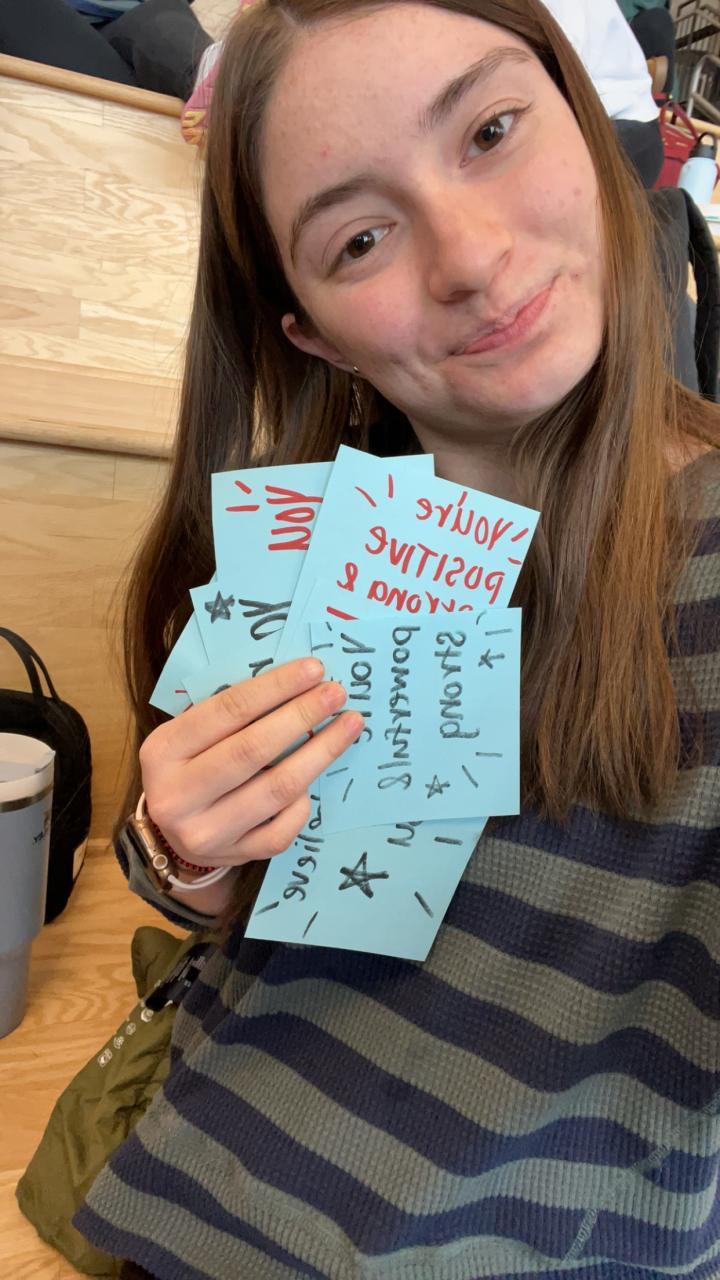 YOU
You're
POSITIVE
strong &
You're
powerful &
strong
believe